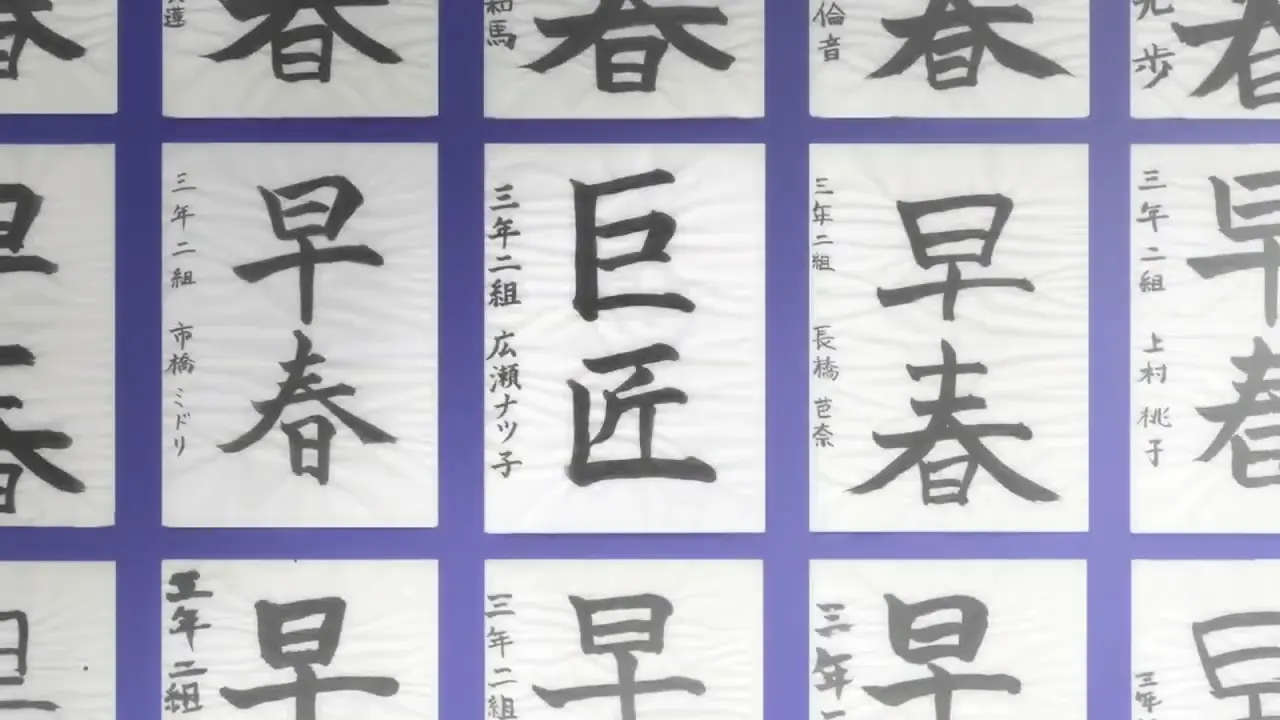 蓮
春
和馬
春
倫音
春
歩
春
三年二組 市橋ミドリ
早春
三年二組 広瀬ナツ子
巨匠
三年二組 長橋 芭奈
早春
三年二組 上村 桃子
早春
三年二組
早
三年二組
早
三年
早
三年